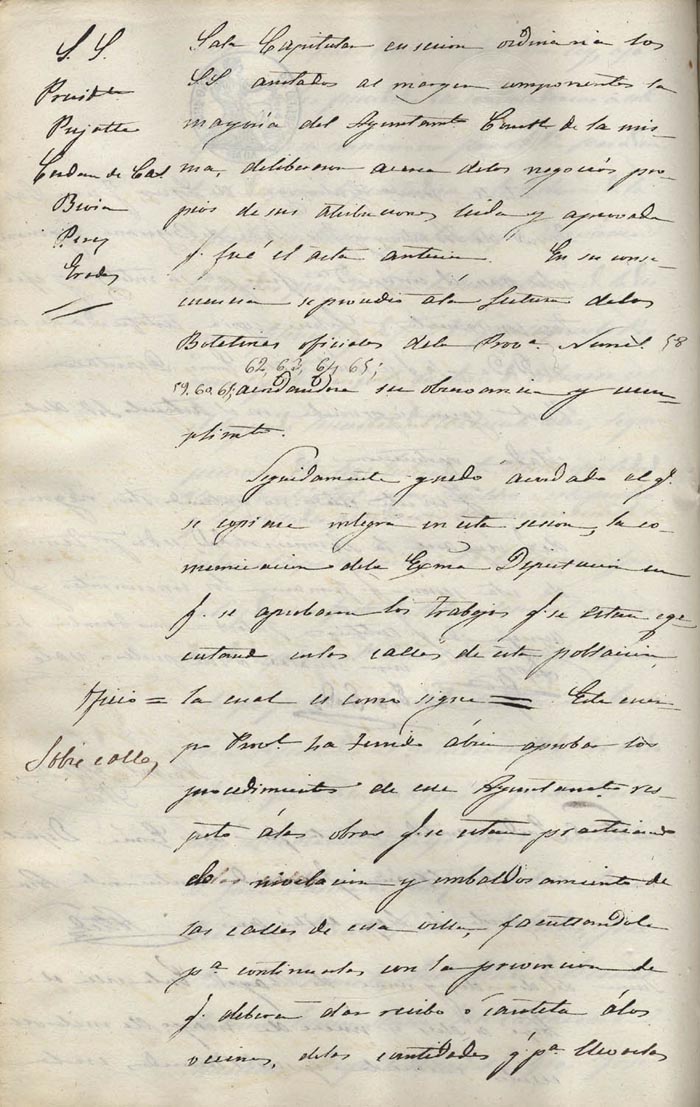 S. S.
Presidte
Pujalte
Cerdan de Cas
Bivia
Perez
Erades
Sala Capitular en secion ordinaria los
SS anotados al margen componentes la
mayoria del Ayuntamto Constl de la mis-
ma, deliberaron acerca delos negocios pro-
pios de sus atribuciones leida y aprovada
q. fué el acta anterior. En su conse-
cuencia se procedio ála lectura delos
Boletines oficiales dela Prova. Nums. 58
62, 63, 64, 65;
59. 60. 61; acordandose su observancia y cum-
plimto.
Seguidamente quedó acordado el q.
se copiase integra en esta sesion, la co-
municacion dela Exma Diputacion en
q. se aprobaron los trabajos q. se estan ege-
cutando enlas calles de esta poblacion,
Oficio = la cual es como sigue = Este cuer-
po Provl. ha tenido ábien aprobar los
Sobre calles
procedimientos de ese Ayuntamto res-
pecto álas obras q. se estan practicando
de nivelacion y embaldosamiento de
las calles de esa villa, facultandole
pa continuarlas con la prevencion de
q. deberá dar recibo ó cautela álos
vecinos, delas cantidades q. pa llevarlas